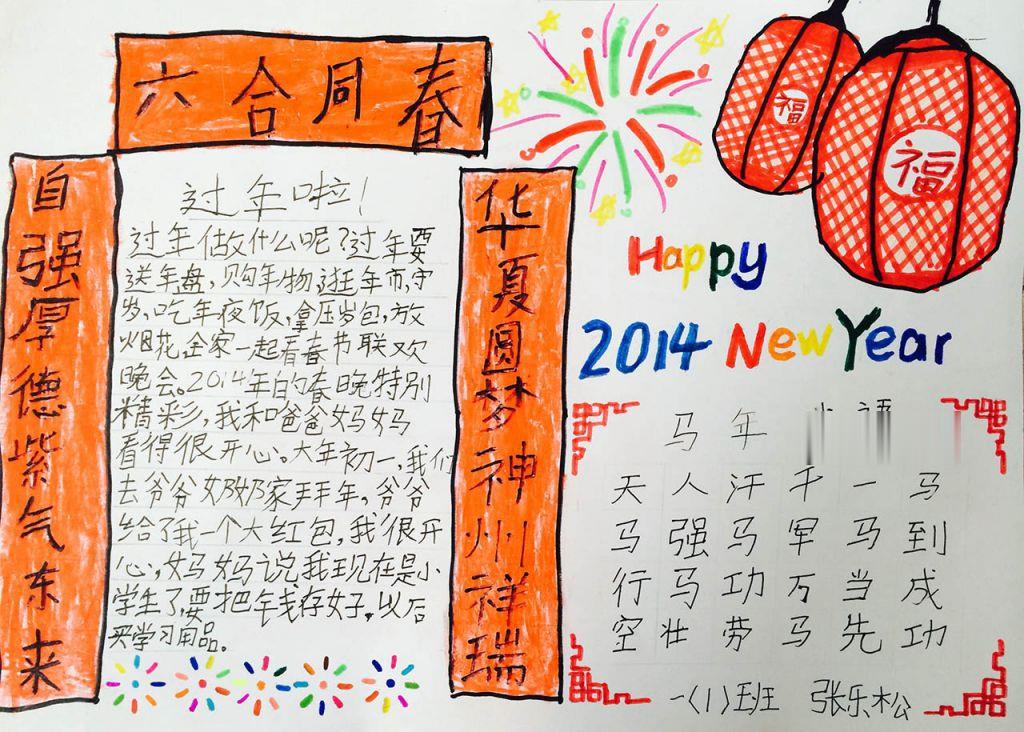 六合同春
自强厚德紫气东来
过年啦!
过年做什么呢?过年要
送年盘,购年物,逛年市,守
岁,吃年夜饭,拿压岁包,放
烟花,全家一起看春节联欢
晚会。2014年的春晚特别
精彩,我和爸爸妈妈
看得很开心。大年初一,我们
去爷爷奶奶家拜年,爷爷
给了我一个大红包,我很开
心,妈妈说我现在是小
学生了,要把钱存好,以后
买学习用品。
华夏圆梦神州祥瑞
福
福
Happy
2014 New Year
马年
天人汗千一马
马强马军马到
行马功万当成
空壮劳马先功
一(1)班 张乐松